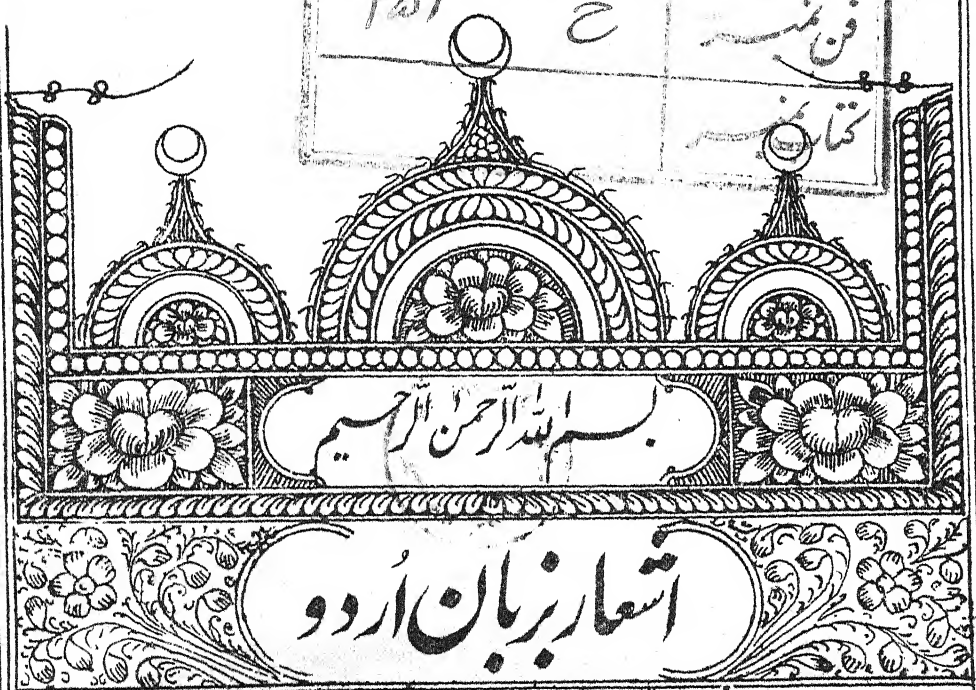 فن نمبر ح
کتاب نمبر
بسم اللہ الرحمن الرحیم
اشعار بزبان اُردو